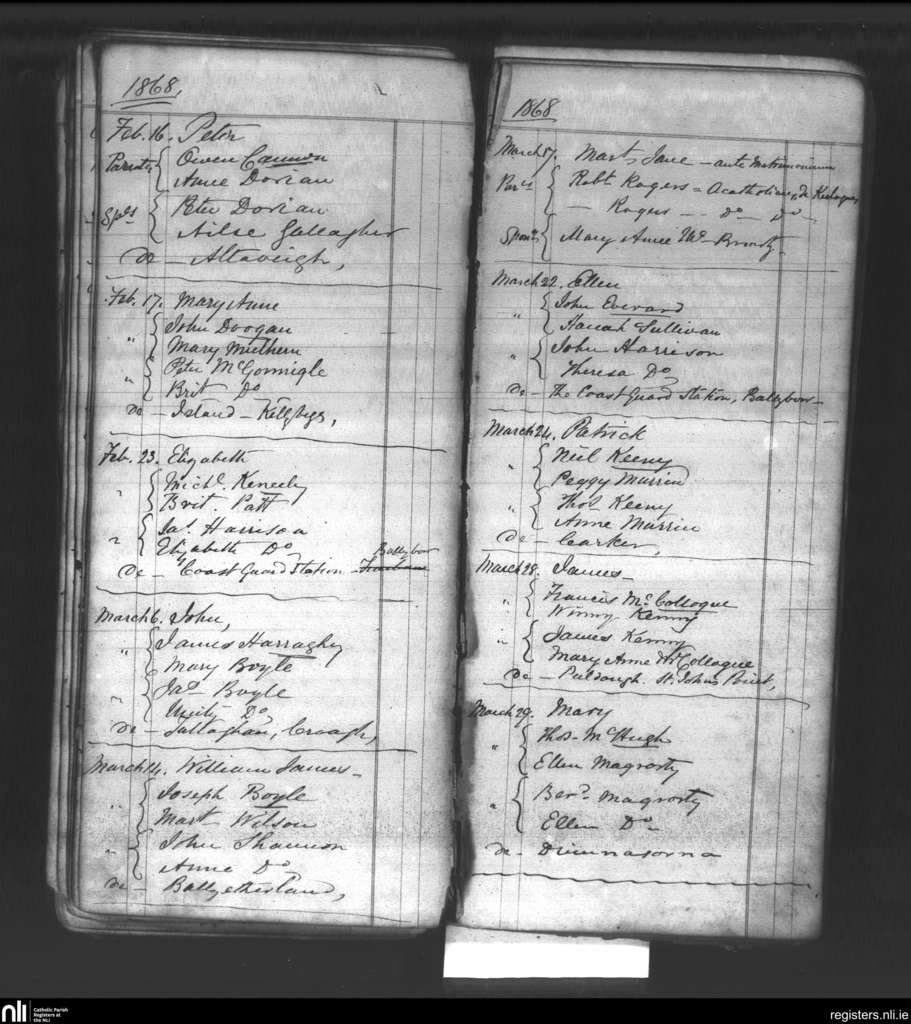 1868,
Feb. 16. Peter
Parents, Owen Cannon
Anne Dorian
Sp.rs Peter Dorian
Ailse Gallagher
de — Altaveigh,
Feb. 17. Mary Anne
" John Doogan
Mary
" Peter McGonnigle
Brit Do
de — Island — Kellybegs,
Feb. 23. Elizabeth
" Michl. Keneely
Brit. Patt
" Jas. Harrison
Elizabeth Do
Ballybow
de — Coast Guard Station —
March 6. John,
" James Harraghy
Mary Boyle
" Jas Boyle
Unity Do
de — Tullaghan, Croagh,
March 14. William James —
" Joseph Boyle
Mart Wilson
" John Shannon
Anne Do
de — Ballyetherland,
1868
March 17. Mart Jane — ante Matrimonium
Par.ts Robt Rogers = Acatholicus, de
— Rogers — Do — Do —
Spons. Mary Anne —
March 22. Ellen
" John Everard
Hanah Sullivan
" John Harrison
Theresa Do
de — The Coast Guard Station, Ballybow —
March 24. Patrick
" Neil Keeny
Peggy Murrin
" Thos Keeny
Anne Murrin
de — Carker,
March 28. James —
" Francis McCollogue
Winny Kenny
" James Kenny
Mary Anne McCollogue
de — St. Johns Point,
March 29. Mary
" Thos — McHugh
Ellen Magrorty
" Berd. Magrorty
Ellen Do —
de — Drimnasorna
nli
Catholic Parish
Registers at
the NLI
registers.nli.ie